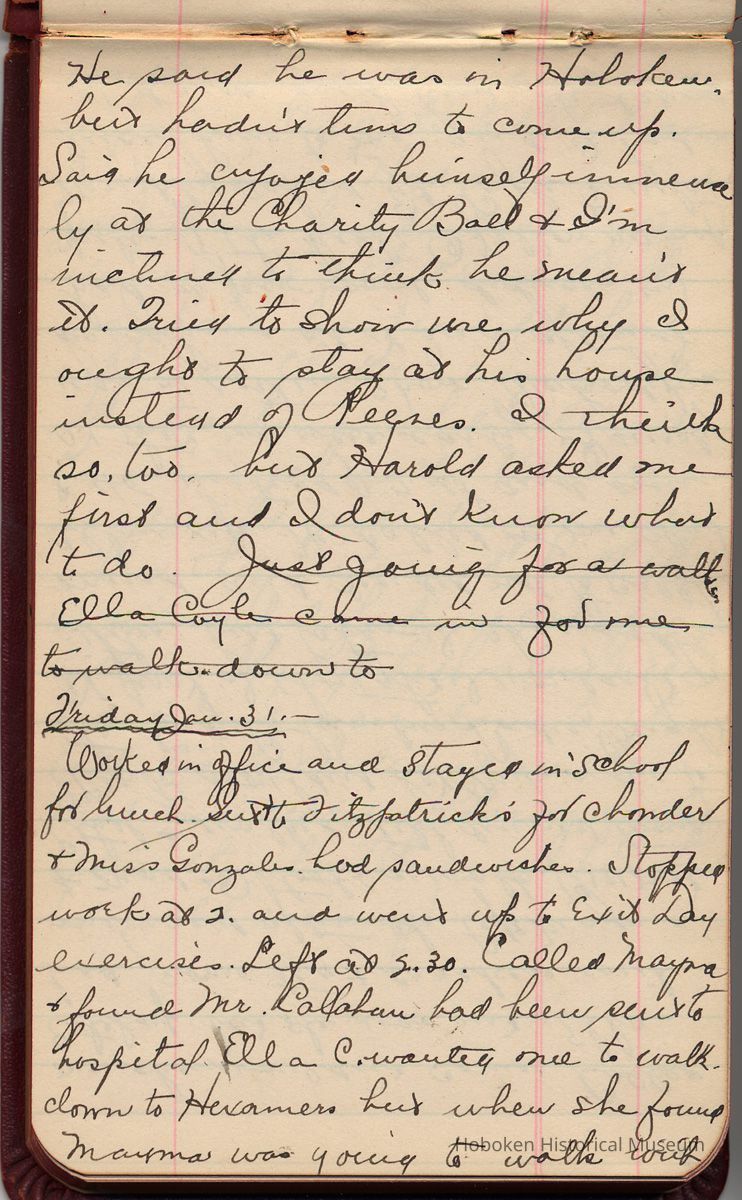 He said he was in Hoboken,
but hadn't time to come up.
Said he enjoyed himself immense
ly at the Charity Ball & I'm
inclined to think he meant
it. Tried to show me why I
ought to stay at his house
instead of I think
so, too, but Harold asked me
first and I don't know what
to do. Just going for a walk
Ella Coyle came in for me
to walk down to
Friday Jan. 31. —
Worked in office and stayed in school
for lunch. Sent to Fitzpatrick's for chowder
& Miss Gonzales had sandwishes. Stopped
work at 2. and went up to Exit Day
exercises. Left at 2.30. Called Mayma
& found Mr. Callahan had been sent to
hospital. Ella C. wanted me to walk
down to Hexamers but when she found
Mayma was going to walk with
Hoboken Historical Museum